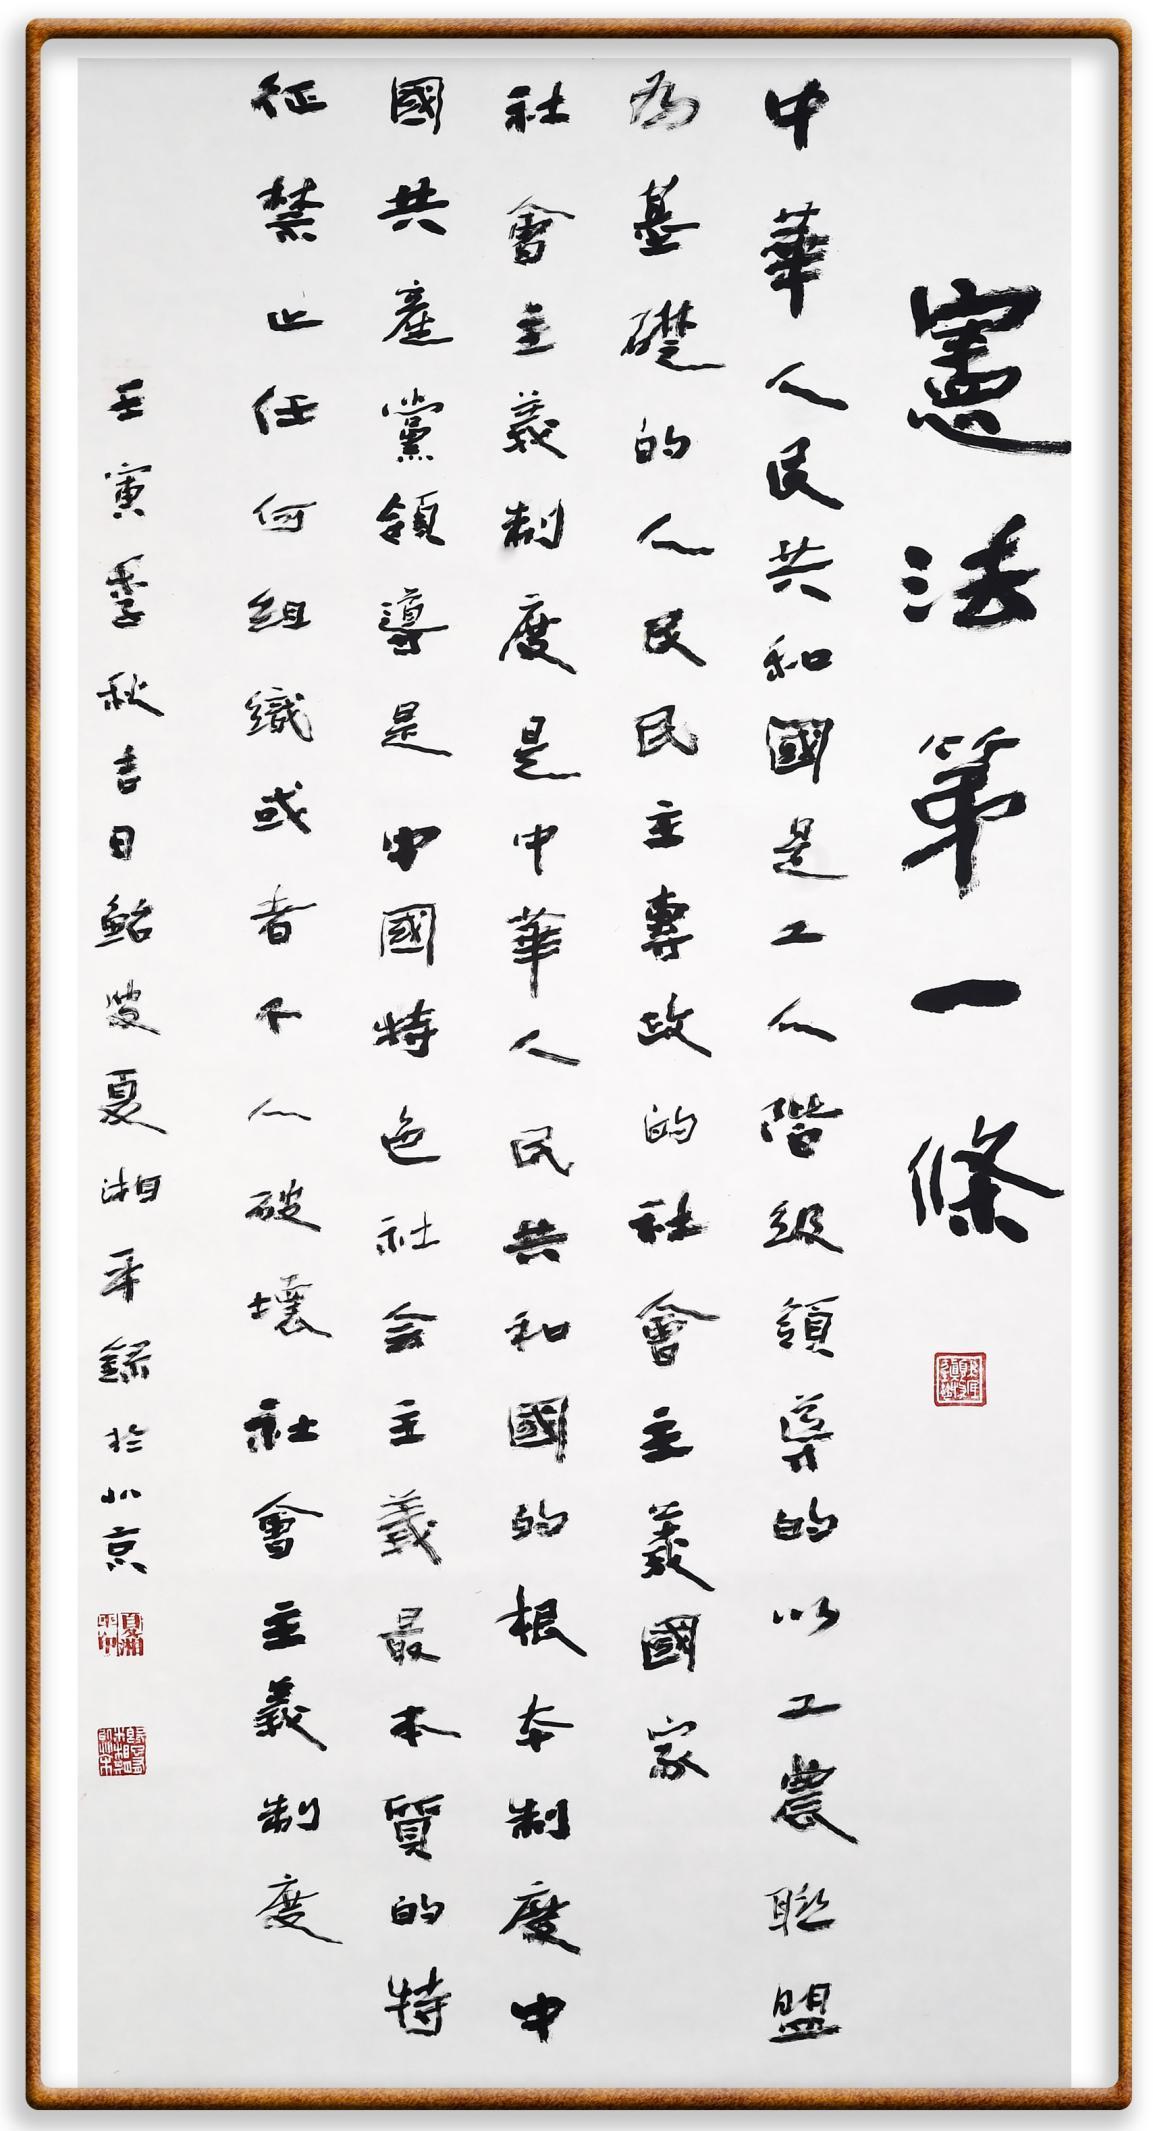 憲法第一條
中華人民共和國是工人階級領導的以工農聯盟
為基礎的人民民主專政的社會主義國家
社會主義制度是中華人民共和國的根本制度中
國共產黨領導是中國特色社会主義最本質的特
征禁止任何組織或者个人破壞社會主義制度
壬寅季秋吉日鮐叟夏湘平錄於北京
夏湘平印